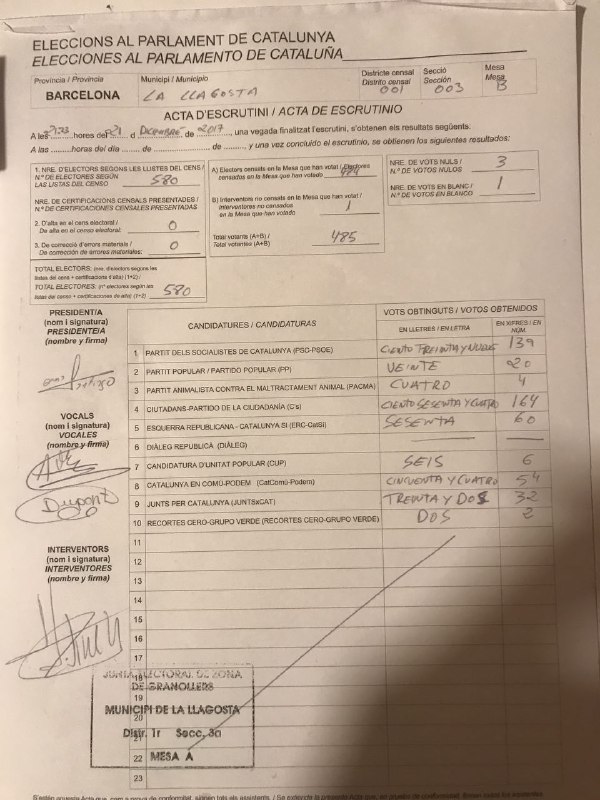 ELECCIONS AL PARLAMENT DE CATALUNYA
ELECCIONES AL PARLAMENTO DE CATALUÑA
Província / Provincia
BARCELONA
Municipi / Municipio
LA LLAGOSTA
Districte censal
Distrito censal
001
Secció
Sección
003
Mesa
Mesa
B
ACTA D'ESCRUTINI / ACTA DE ESCRUTINIO
A les 21:33 hores del 21 d DICIEMBRE de 2017, una vegada finalitzat l'escrutini, s'obtenen els resultats següents.
A las ........horas del día ....... de .................. de ........ y una vez concluido el escrutinio, se obtienen los siguientes resultados:
1. NRE. D'ELECTORS SEGONS LES LLISTES DEL CENS /
N.º DE ELECTORES SEGÚN
LAS LISTAS DEL CENSO
580
NRE. DE CERTIFICACIONS CENSALS PRESENTADES /
N.º DE CERTIFICACIONES CENSALES PRESENTADAS
2. D'alta en el cens electoral /
De alta en el censo electoral:
0
3. De correcció d'errors materials /
De corrección de errores materiales:
0
TOTAL ELECTORS: (nre. d'electors segons les
llistes del cens + certificacions d'alta) (1+2) /
TOTAL ELECTORES: (nº electores según las
listas del censo + certificaciones de alta) (1+2)
580
A) Electors censats en la Mesa que han votat / Electores
censados en la Mesa que han votado
484
B) Interventors no censats en la Mesa que han votat /
Interventores no censados
en la Mesa que han votado
1
Total votants (A+B) /
Total votantes (A+B)
485
NRE. DE VOTS NULS /
N.º DE VOTOS NULOS
3
NRE. DE VOTS EN BLANC /
N.º DE VOTOS EN BLANCO
1
PRESIDENT/A
(nom i signatura)
PRESIDENTE/A
(nombre y firma)
VOCALS
(nom i signatura)
VOCALES
(nombre y firma)
Dupont
INTERVENTORS
(nom i signatura)
INTERVENTORES
(nombre y firma)
CANDIDATURES / CANDIDATURAS
VOTS OBTINGUTS / VOTOS OBTENIDOS
EN LLETRES / EN LETRA
EN XIFRES / EN NÚM.
1 PARTIT DELS SOCIALISTES DE CATALUNYA (PSC-PSOE) CIENTO TREINTA Y NUEVE 139
2 PARTIT POPULAR / PARTIDO POPULAR (PP) VEINTE 20
3 PARTIT ANIMALISTA CONTRA EL MALTRACTAMENT ANIMAL (PACMA) CUATRO 4
4 CIUTADANS-PARTIDO DE LA CIUDADANÍA (C's) CIENTO SESENTA Y CUATRO 164
5 ESQUERRA REPUBLICANA - CATALUNYA SÍ (ERC-CatSí) SESENTA 60
6 DIÀLEG REPUBLICÀ (DIÀLEG)
7 CANDIDATURA D'UNITAT POPULAR (CUP) SEIS 6
8 CATALUNYA EN COMÚ-PODEM (CatComú-Podem) CINCUENTA Y CUATRO 54
9 JUNTS PER CATALUNYA (JUNTSxCAT) TREINTA Y DOS 32
10 RECORTES CERO-GRUPO VERDE (RECORTES CERO-GRUPO VERDE) DOS 2
11
12
13
14
15
16
17
18
19
20
21
22
23
JUNTA ELECTORAL DE ZONA
DE GRANOLLERS
MUNICIPI DE LA LLAGOSTA
Distr. 1r Secc. 3a
MESA A